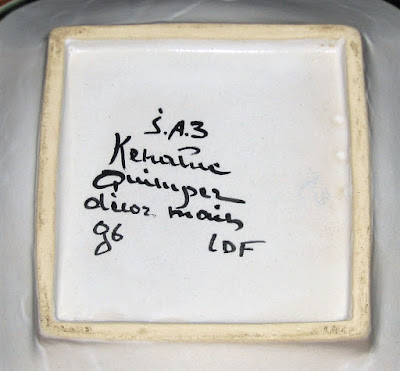 S.A.3
Keraluc
Quimper
décor main
96 LDF